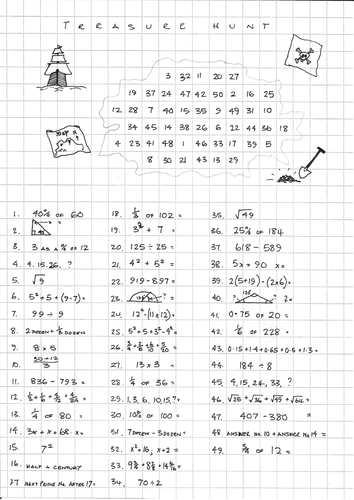 TREASURE HUNT
3 32 11 20 27
19 37 24 47 42 50 2 16 25
12 28 7 40 15 35 9 49 31 10
34 45 14 38 26 6 22 44 36 18
4 23 41 48 1 46 33 17 39 5
8 30 21 43 13 29
1. 40% OF 60
2.
3. 3 AS A % OF 12
4. 4.15.26. ?
5. √9
6. 5²+5+(9-7)=
7. 99 ÷ 9
8. 2 DOZEN + 1/3 DOZEN
9. 8 x 5
10.
11. 836 - 793 =
12.
13. 1/4 OF 80 =
14. 3x + x = 68 x=
15. 7²
16. HALF A CENTURY
17 NEXT PRIME No. AFTER 17=
18. 1/3 OF 102 =
19. 3³ + 7 =
20. 125 ÷ 25 =
21. 4² + 5² =
22. 919 - 897 =
23.
24. 12² - (11x12) =
25. 5²+5+3²-4²=
26.
27. 13 x 3 =
28. OF 36 =
29. 1, 3, 6, 10, 15, ? =
30. 10% OF 100 =
31. 7 DOZEN - 3 DOZEN =
32. x² = 16 ; x + 2 =
33.
34. 70 ÷ 2
35. √49
36. 25% OF 184
37. 618 - 589
38. 5x = 90 x =
39. 2(5+9) - (2x6) =
40. ? =
41. 0.75 OF 20 =
42. 1/6 OF 228 =
43. 0.15+1.4+0.65+0.5+1.3=
44. 184 ÷ 8
45. 4, 15, 24, 33, ?
46. √25 + √36 + √49 + √64 =
47. 407 - 380 =
48 ANSWER No. 10 + ANSWER No 14 =
49. OF 12 =